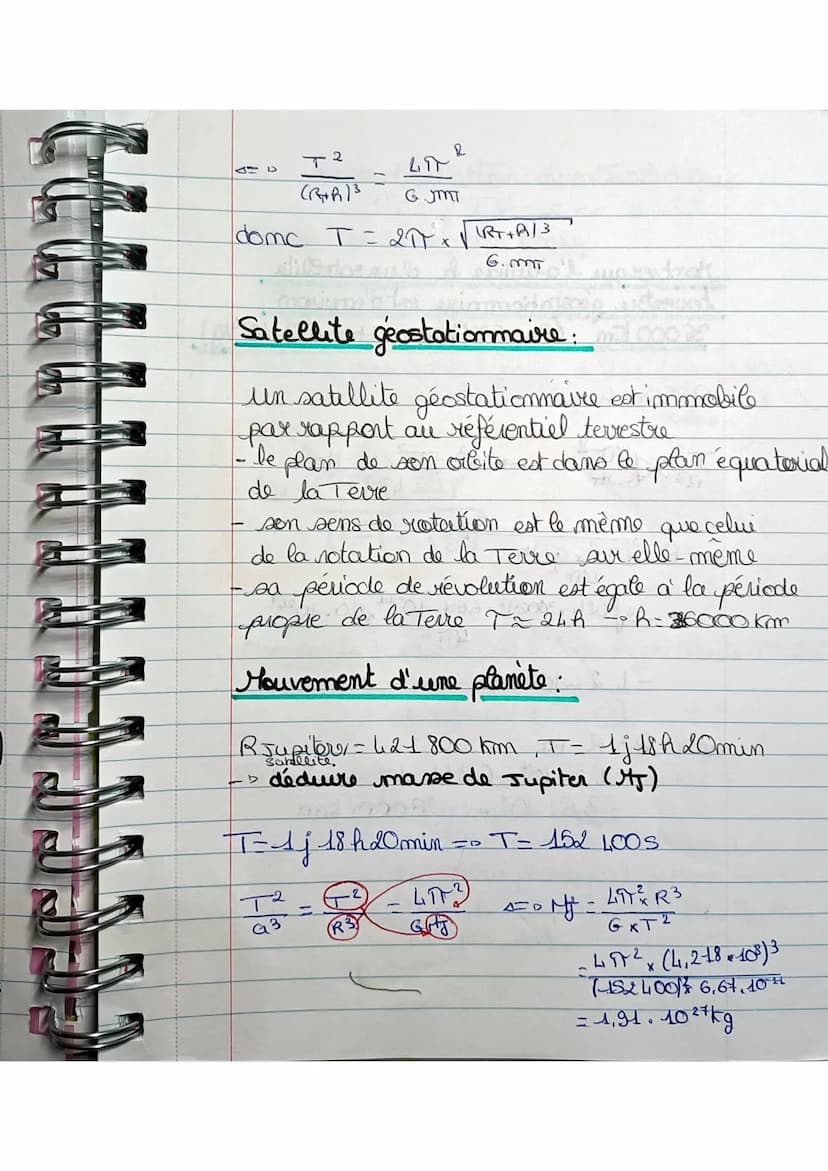 <=> T²/(RT+h)³ = 4π²/G.mT
donc T = 2π × √((RT+h)³/G.mT)
Satellite géostationnaire :
un satellite géostationnaire est immobile
par rapport au référentiel terrestre
- le plan de son orbite est dans le plan équatorial
de la Terre
- son sens de rotation est le même que celui
de la rotation de la Terre sur elle-même
- sa période de révolution est égale à la période
propre de la Terre T ≈ 24h → h = 36000 km
Mouvement d'une planète :
R Jupiter = 421 800 km, T = 1j 18h 20min
satellite
→ déduire masse de Jupiter (MJ)
T = 1j 18h 20min => T = 152 400s
T²/a³ = T²/R³ = 4π²/G MJ <=> MJ = 4π² × R³/G × T²
= 4π² × (4,218 × 10⁸)³/(152 400)² × 6,67.10⁻¹¹
= 1,91 . 10²⁷ kg